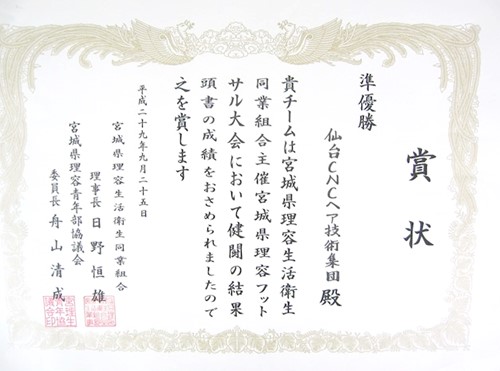 賞状
準優勝
仙台CNCヘア技術集団 殿
貴チームは宮城県理容生活衛生
同業組合主催宮城県理容フット
サル大会において健闘の結果
頭書の成績をおさめられましたので
之を賞します
平成二十九年九月二十五日
宮城県理容生活衛生同業組合
理事長 日野恒雄
宮城県理容青年部協議会
委員長 舟山清成